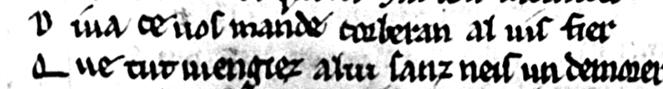 D iua ce uos mande corberan al uis fier
Q ue tut uiengiez a lui sanz neis un demorer